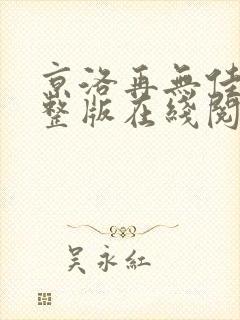 京洛再無佳
整版在綫閱
吳永紅